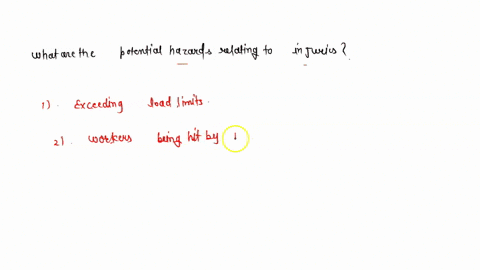 what are the potential hazards relating to injuries?
1). Exceeding load limits.
2). workers being hit by